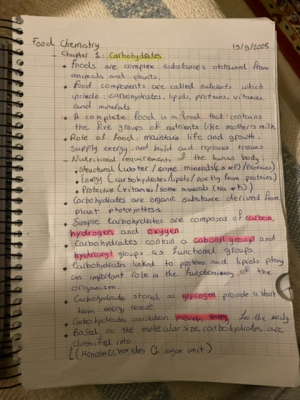 Food Chemistry 19/9/2025
Chapter 1: Carbohydrates
• Foods are complex substances obtained from
animals and plants.
• Food components are called nutrients which
include: carbohydrates, lipids, proteins, vitamins,
and minerals
• A complete food is a food that contains
the five groups of nutrients like mother's milk
• Role of food: maintain life and growth,
supply energy, and build and replace tissues
• Nutritional requirements of the human body:
• Structural (water / some minerals / proteins)
• Energy (carbohydrates / lipids / partly from proteins)
• Protective (vitamins / some minerals)
• Carbohydrates are organic substance derived from
plant photosynthesis
• Simple Carbohydrates are composed of carbon,
hydrogen and oxygen
• Carbohydrates contain a carbonyl group and
hydroxyl groups as functional groups
• Carbohydrates linked to protein and lipids play
an important role in the functioning of the
organism
• Carbohydrates stored as glycogen provide a short
term energy reserve
• Carbohydrates oxidation provide energy for the body
• Based on the molecular size, carbohydrates are
classified into:
(1 sugar unit)